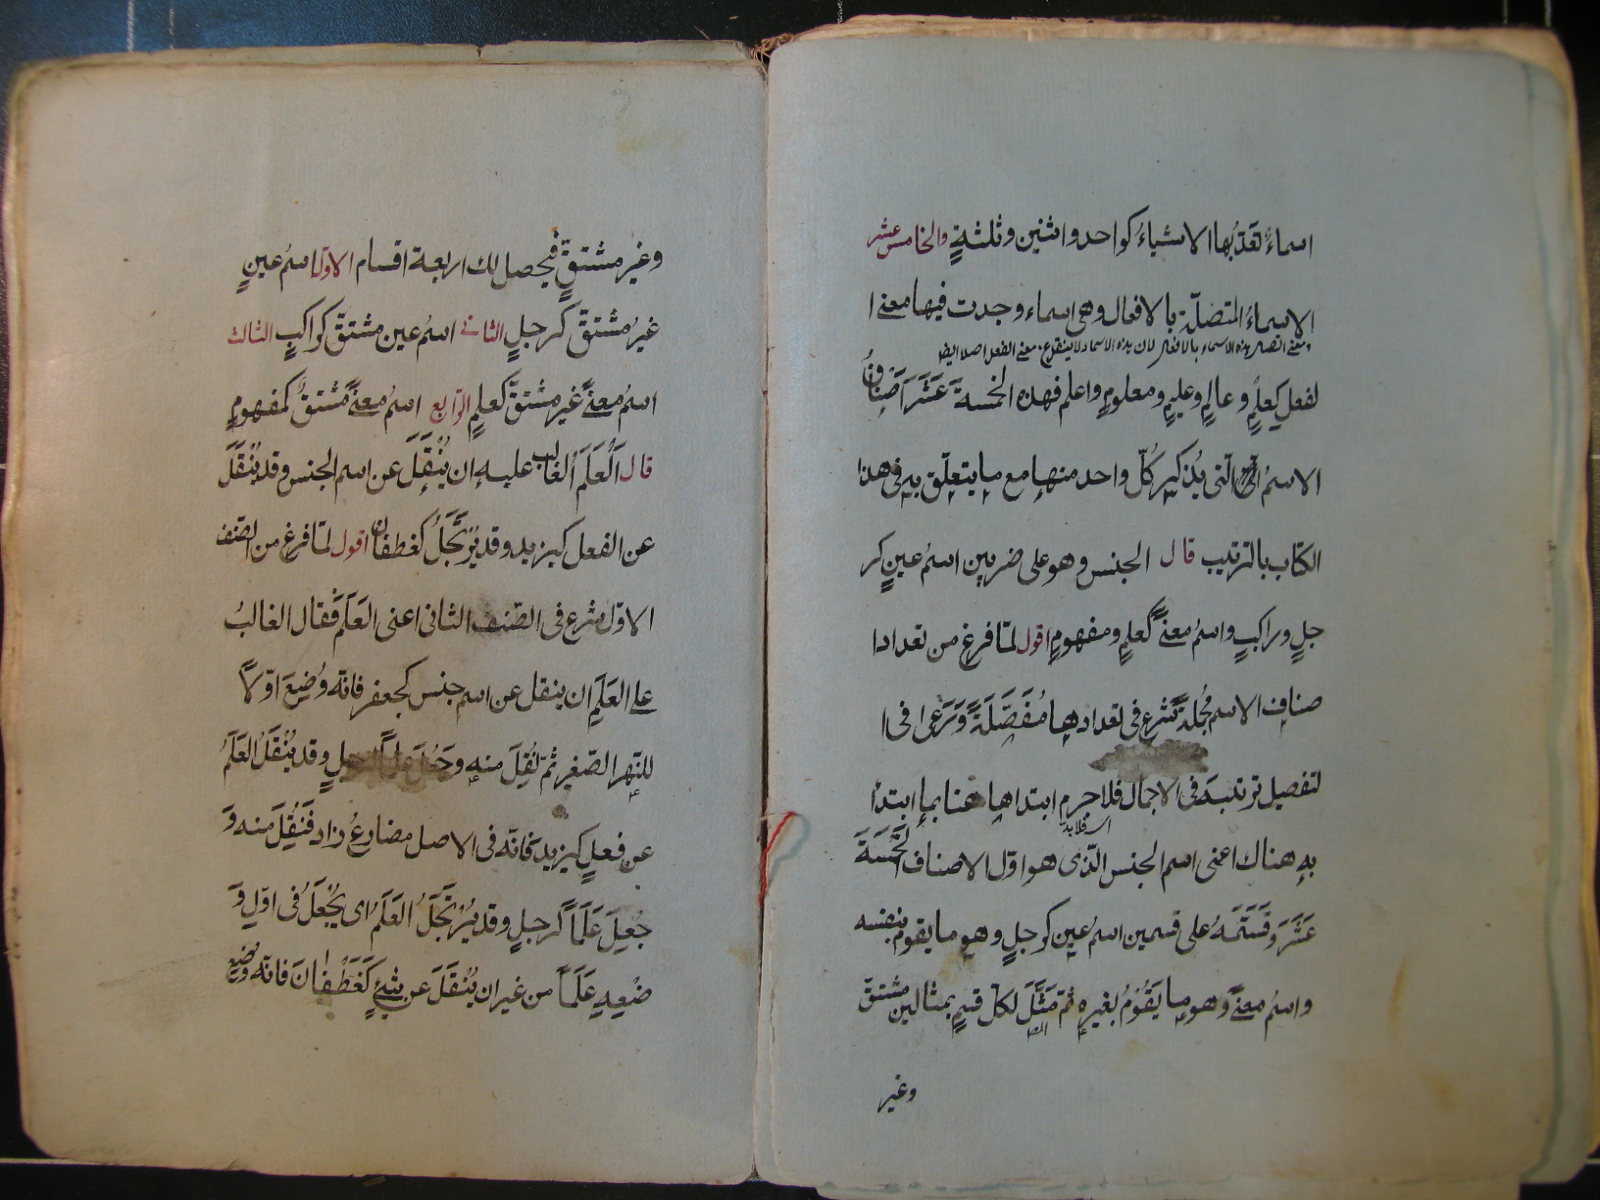 اسماءٌ تعَدّبُها الاشياءُ كواحد واثنين وثلثةٍ والخامس عشر
الاسماءُ المتصلّة بالافعال وهى اسماء وجدت فيها معنى ا
ومعنى اتصال هذه الاسماء بالافعال لان هذه الاسماء لا ينقرع معنى الفعل اصلا ايضا
لفعل كعلمٍ وعالمٍ وعليمٍ ومعلومٍ واعلم فهذه الخمسةَ عَشَرَ اَصْنافُ
الاسمُ الّتى يُذكر كُلّ واحد منها مع ما يتعلّق به فى هذا
الكتاب بالترتيب قال الجنس وهو على ضربين اسمُ عينٍ كر
جلٍ وراكبٍ واسمُ معنىً كعلمٍ ومفهومٍ اقول لمّا فرغ من تعداد ا
صناف الاسم مُجملةً شرع فى تعدادها مُفَصَّلَةً وَرَعٰى فى ا
لتفصيل ترتيبَه فى الاجمال فلا جرم ابتداها هنا بما ابتدأ
اى فلابد
به هناك اعنى اسم الجنس الّذى هو اوّل الاصناف الخَمْسَةَ
عَشَرَ وَقَسَّمَهُ على قسمين اسمُ عينٍ كرجلٍ وهو ما يقوم بنفسه
واسمُ معنىً وهو ما يَقُوْمُ بغيره ثمّ مَثَّلَ لكلّ قسمٍ بمثالين مشتقّ
المص
وغير
وغير مشتقٍّ فيحصل لك اربعة اقسام الاوّل اسمُ عينٍ
غيرُ مشتقّ كرجلٍ الثانى اسمُ عين مشتقّ كراكبٍ الثالث
اسمُ معنىً غير مشتقّ كعلمٍ الرّابع اسمُ معنىً مُشتقٌّ كمفهومٍ
قال اَلْعَلَمُ الغالب عليه ان يُنْقَلَ عن اسم الجنس وقد يُنْقَلُ
عن الفعل كيزيد وقد يُرْتَجَلُ كغطفان اقول لمّا فرغ من الصّنف
الاوّل شرع فى الصّنف الثانى اعنى العَلَم فقال الغالبُ
على العَلَمِ ان ينقل عن اسم جنس كجعفر فانّه وُضِعَ اوّلاً
للنّهر الصّغير ثمّ نُقِلَ منه وجُعِلَ علماً لرجلٍ وقد يُنْقَلُ العَلَمُ
عن فعلٍ كيزيد فانّه فى الاصل مضارعُ زاد فَنُقِلَ منه وَ
جُعِلَ عَلَمَاً كرجلٍ وقد يُرْتَجَلُ العَلَمُ اى يُجْعَلُ فى اوّلِ وَ
ضْعِهِ عَلَمَاً من غير ان يُنْقَلَ عن شئٍ كَغَطَفانَ فانّه وُضِعَ